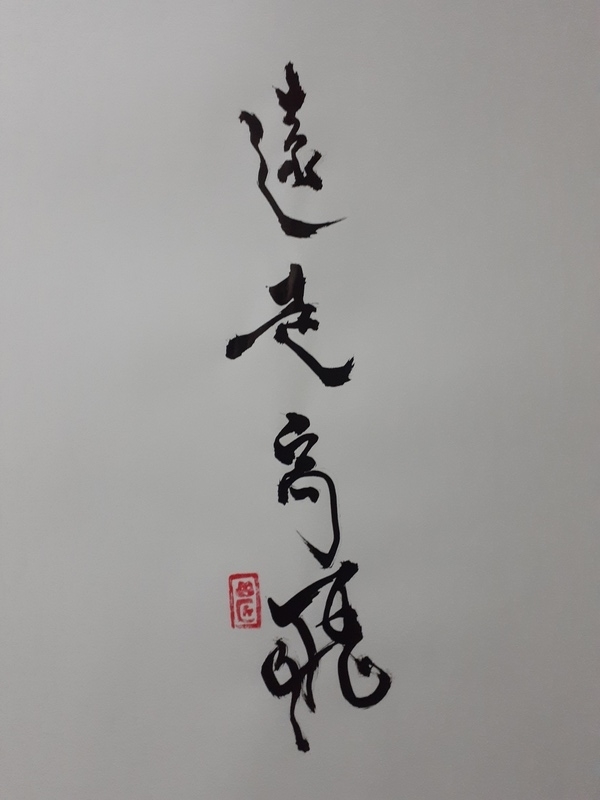 遠走高飛